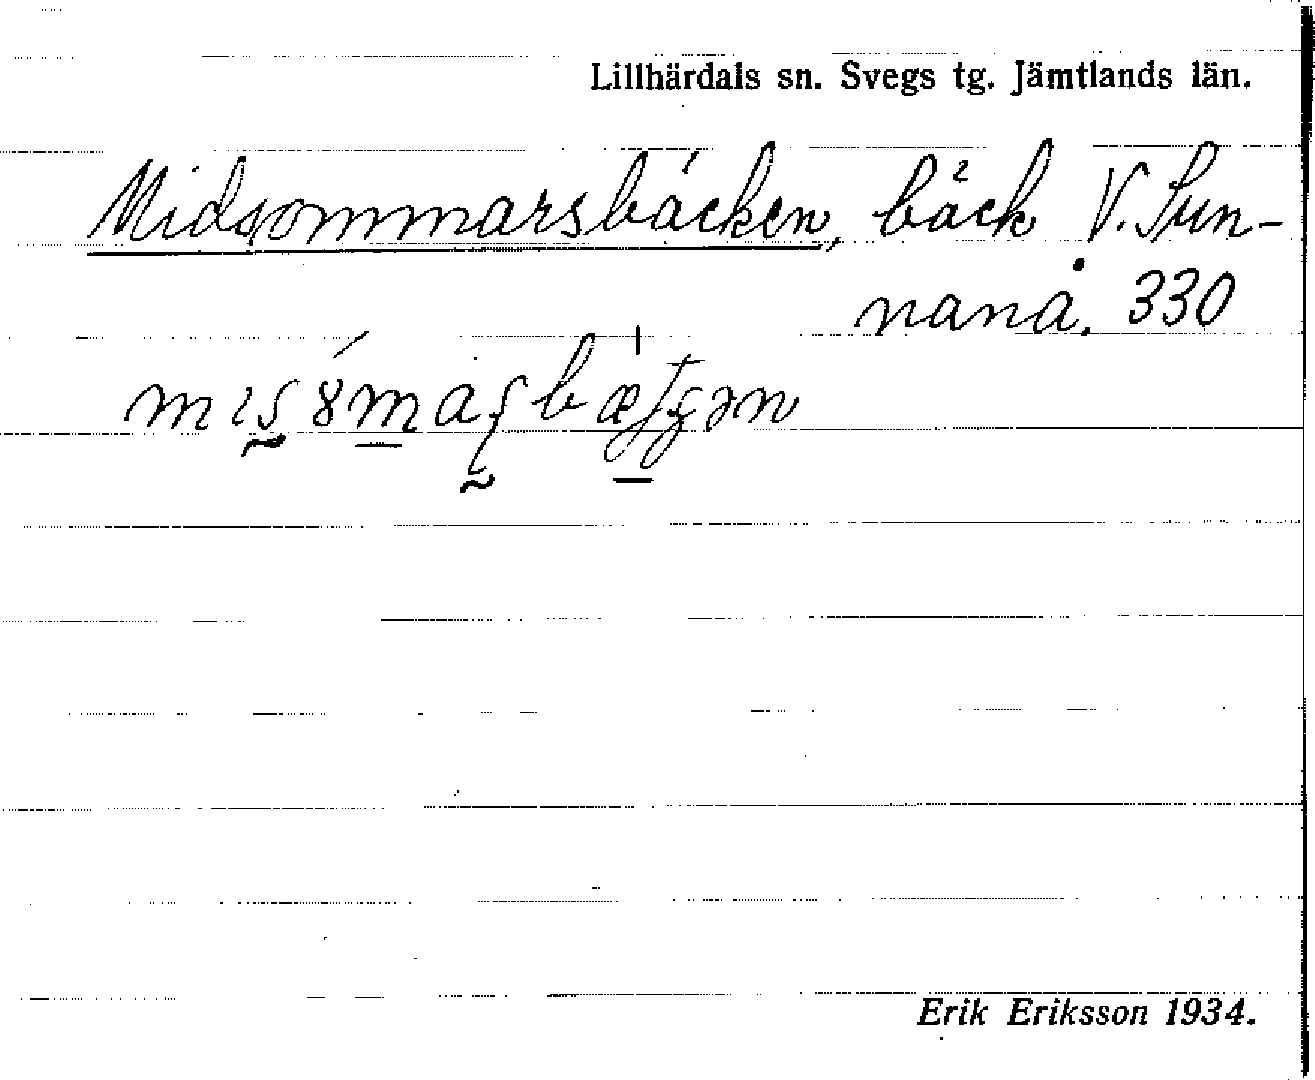 Lillhärdals sn. Svegs tg. Jämtlands län.
Midsommarsbäcken, bäck V. Sun-
nanå. 330
Erik Eriksson 1934.